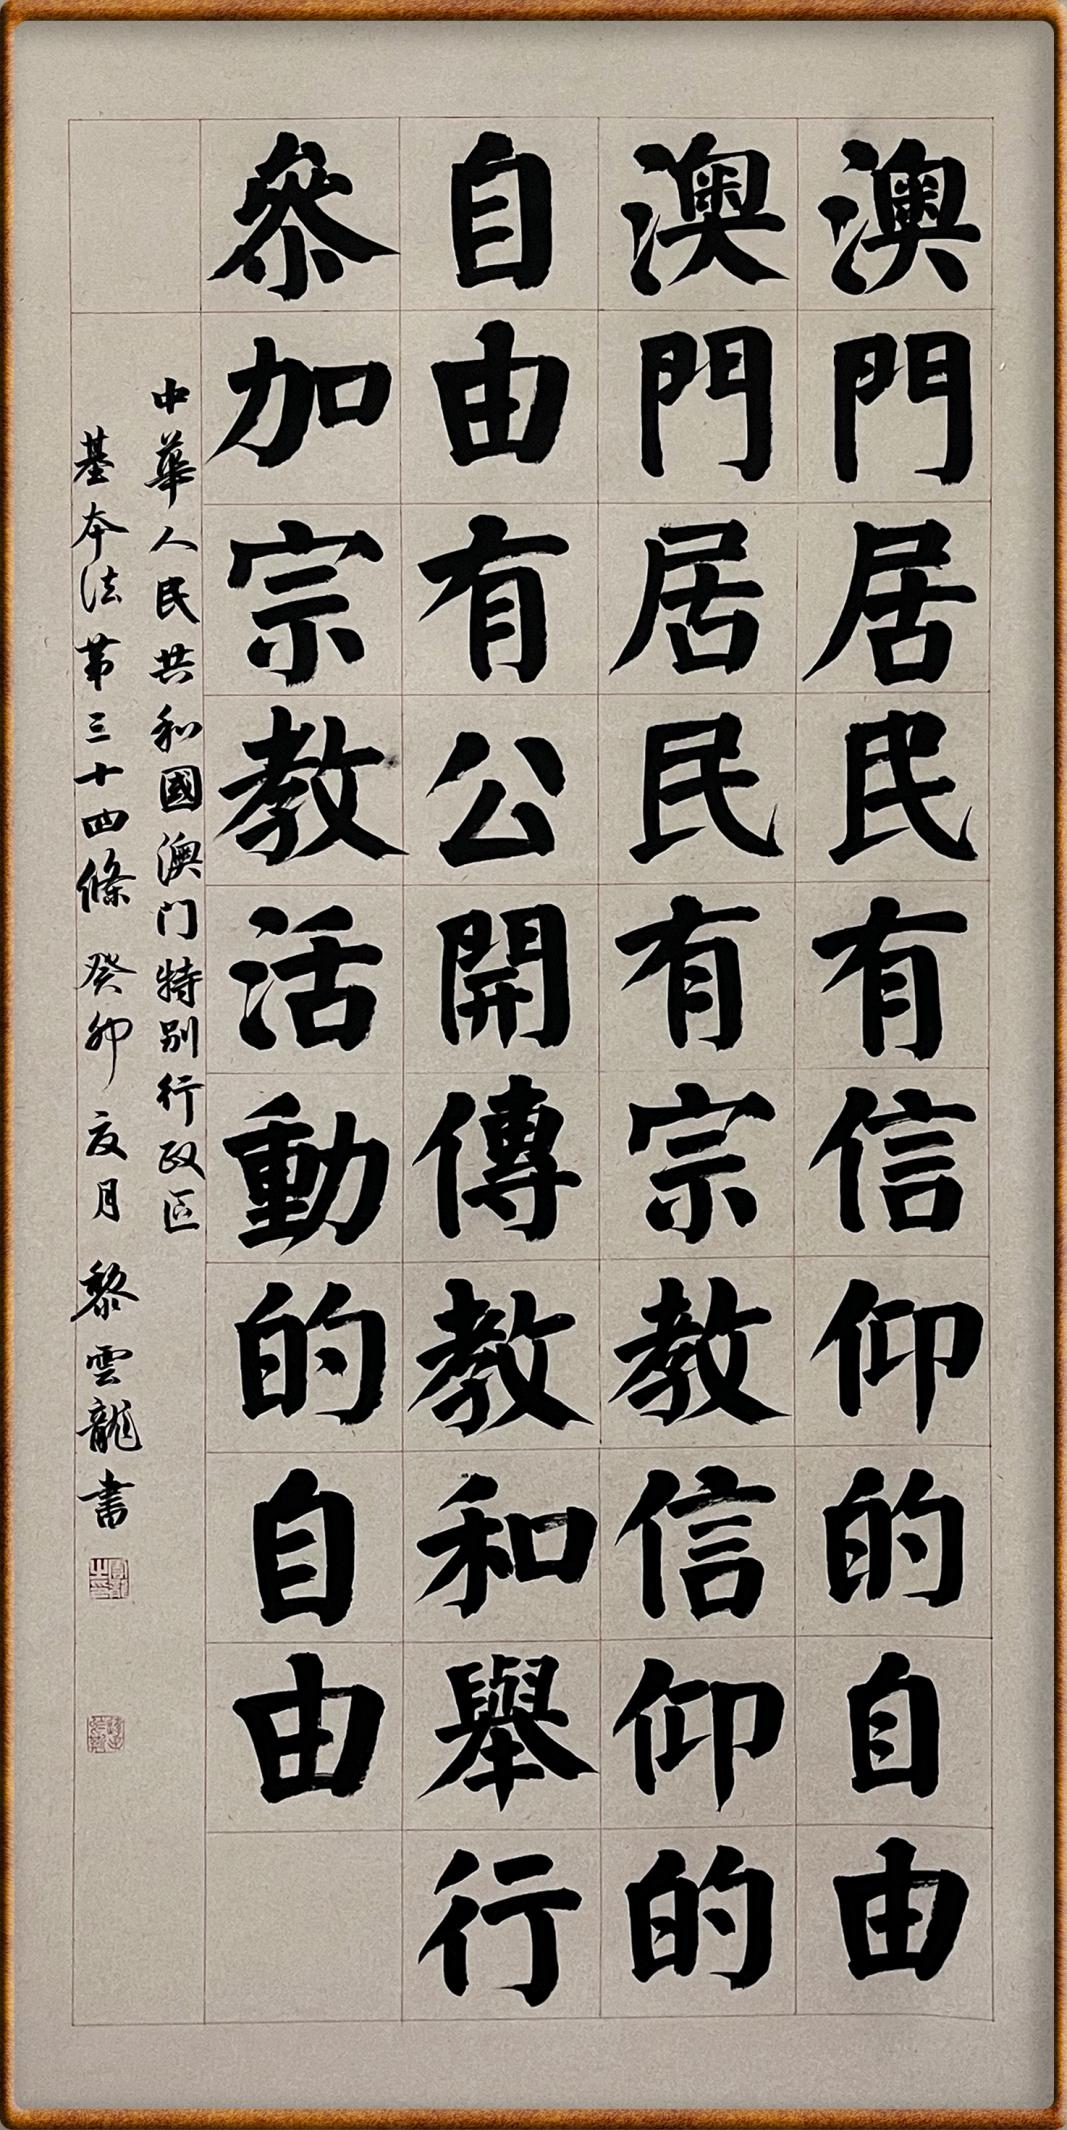 澳門居民有信仰的自由
澳門居民有宗教信仰的
自由有公開傳教和舉行
參加宗教活動的自由
中華人民共和國澳门特别行政区
基本法第三十四條 癸卯 夏月 黎雲龍書